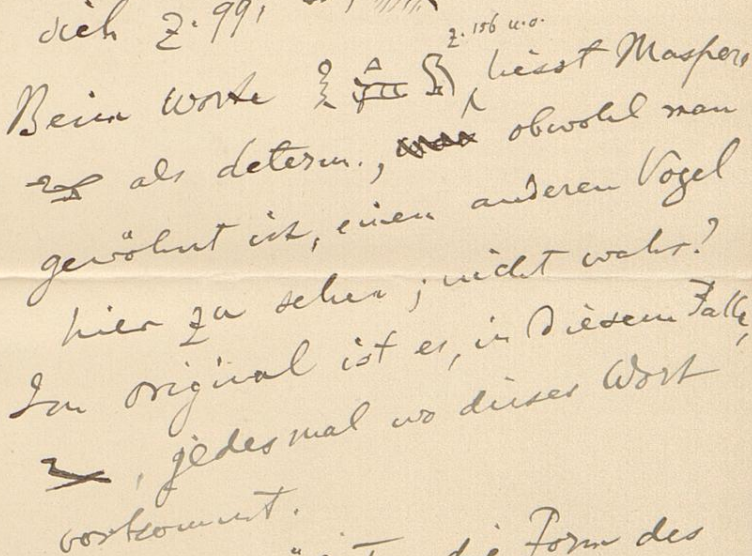 dich Z. 99,
Z. 156 u.o.
Beim Worte , liest Maspero
als determ., obwohl man
gewöhnt ist, einen anderen Vogel
hier zu sehen; nicht wahr?
Im original ist es, in diesem Falle,
, jedesmal wo dieses Wort
vorkommt.
die Form des